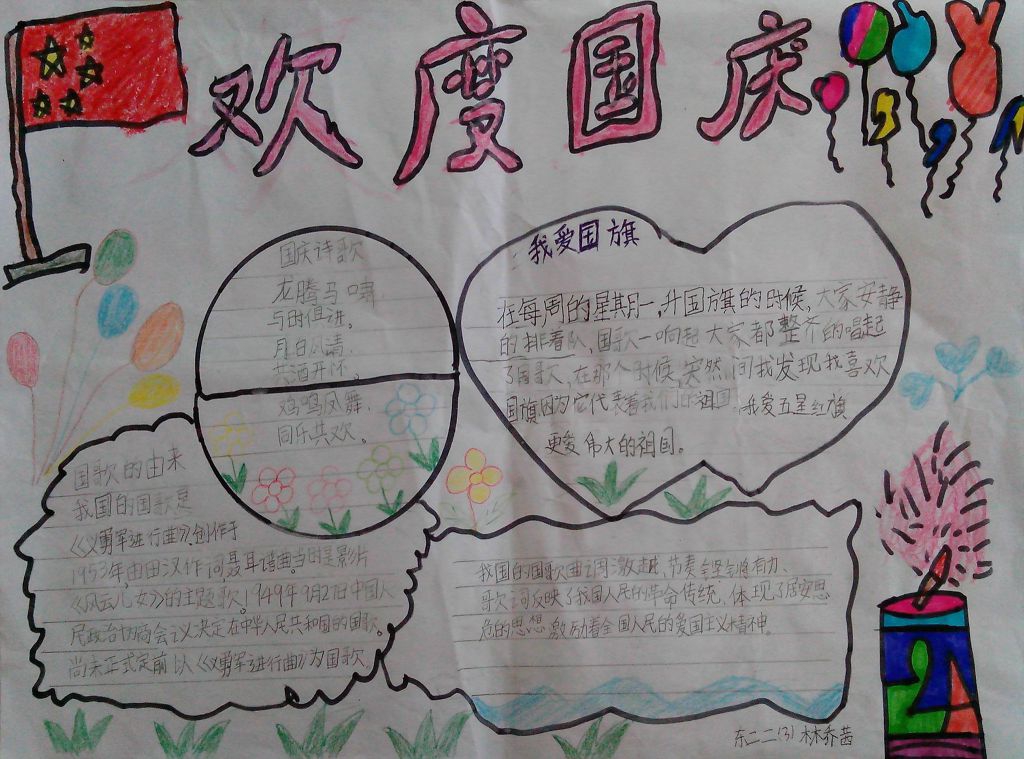 欢度国庆
国庆诗歌
龙腾马啸,
与时俱进。
月白风清,
共酒开怀。
鸡鸣凤舞,
同乐共欢。
我爱国旗
在每周的星期一,升国旗的时候,大家安静
的排着队,国歌一响起大家都整齐的唱起
了国歌,在那个时候,突然间我发现我喜欢
国旗因为它代表着我们的祖国。我爱五星红旗
更爱伟大的祖国。
国歌的由来
我国的国歌是
《义勇军进行曲》,创作于
1953年由田汉作词聂耳谱曲。当时是影片
《风云儿女》的主题歌。1949年9月27日中国人
民政治协商会议决定在中华人民共和国的国歌
尚未正式定前以《义勇军进行曲》为国歌
我国的国歌曲调激越,节奏坚定有力、
歌词反映了我国人民的革命传统,体现了居安思
危的思想激励着全国人民的爱国主义精神。
东二二(3) 林乔茜